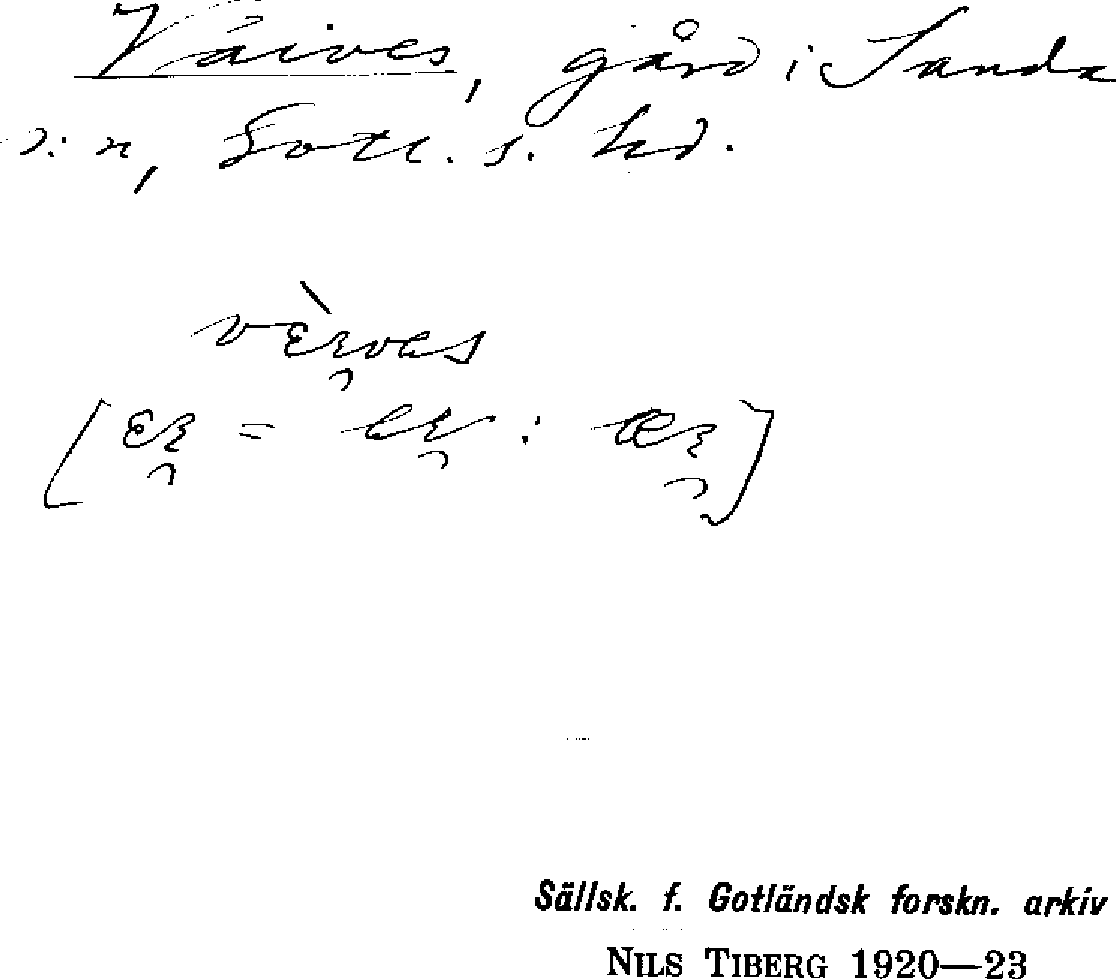 Vaives, gård i Sanda
s:n, Gotl. s. hd.
vɛ̀ı̯vas
[ɛı̯ = eı̯ : æı̯]
Sällsk. f. Gotländsk forskn. arkiv
NILS TIBERG 1920—23